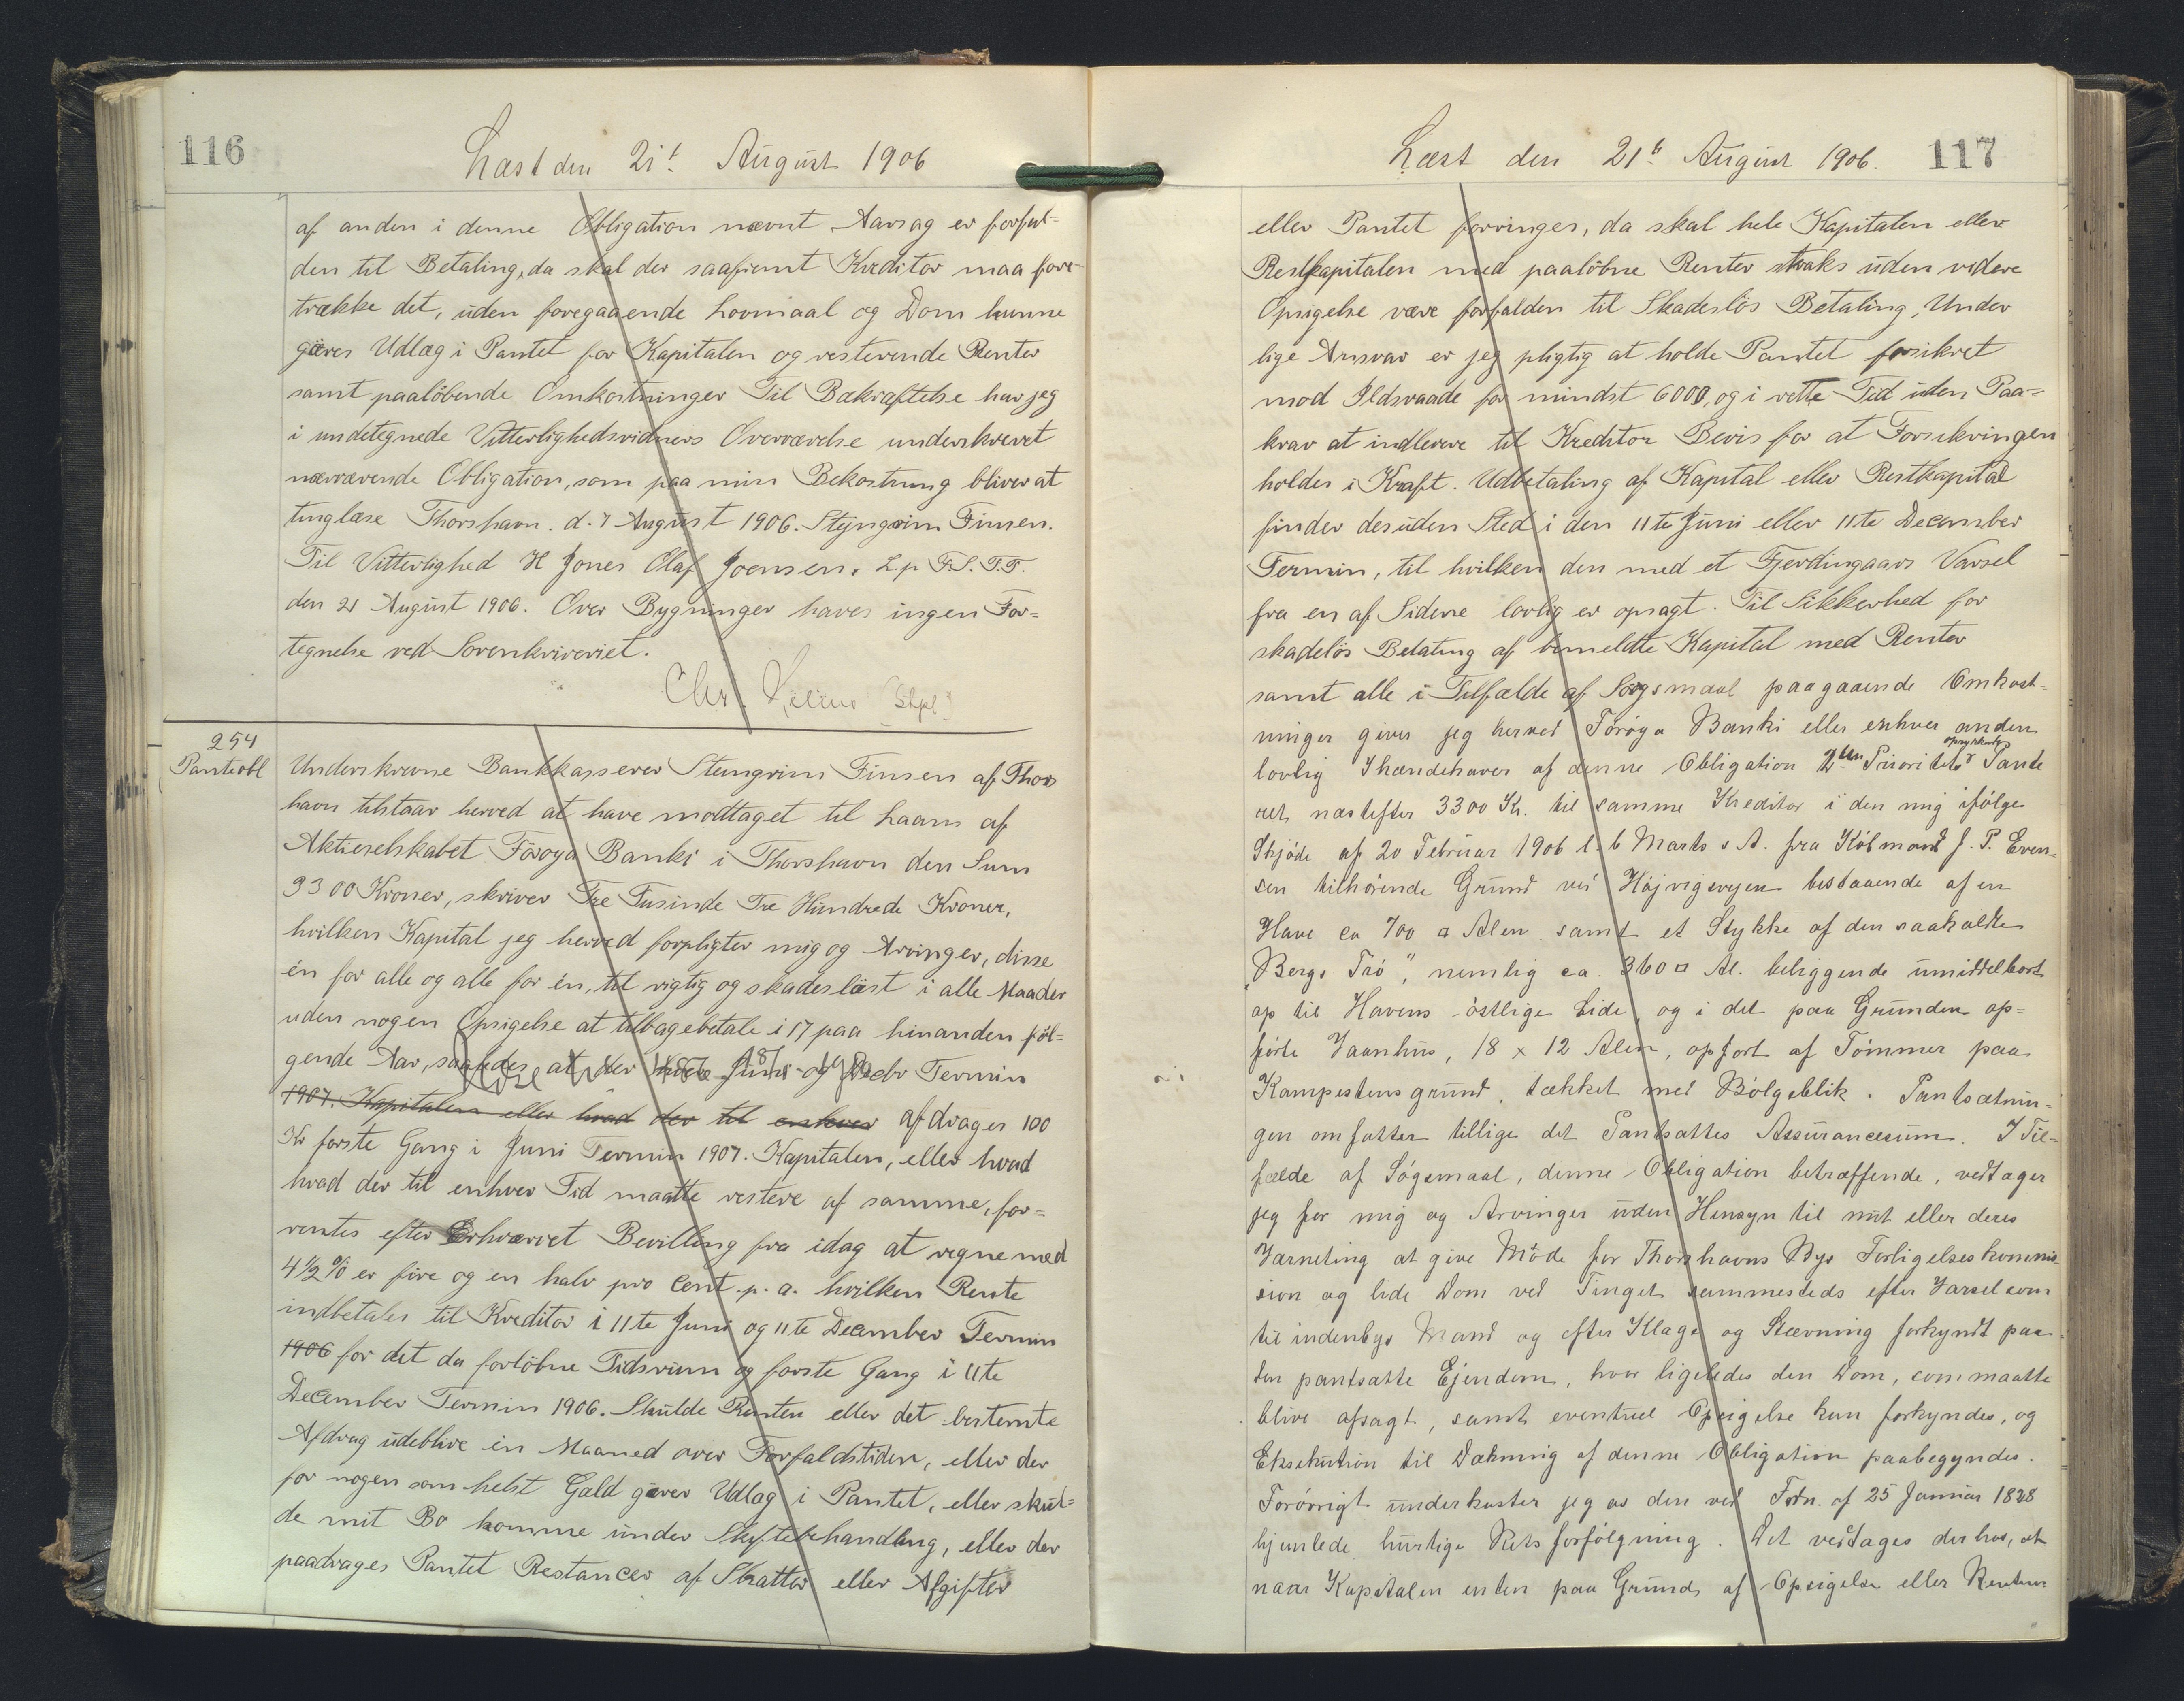 116
Læst den 21t August 1906
af anden i denne Obligation nævnt Aarsag er forfal-
den til Betaling, da skal der saafremt Kreditor maa fore-
trække det, uden foregaaende Lovmaal og Dom kunne
gøres Udlæg i Pantet for Kapitalen og resterende Renter
samt paaløbende Omkostninger Til Bekræftelse har jeg
i undetegnede Vitterlighedsvidners Overværelse underskrevet
nærværende Obligation, som paa min Bekostning bliver at
tinglæse Thorshavn. d. 7 August 1906. Steingrim Finsen.
Til Vitterlighed H Jones Olaf Joensen. L.p F.S. T.F.
den 21 August 1906. Over Bygninger haves ingen For-
tegnelse ved Sorenkriveriet.
Chr.
254
Panteobl
Underskrevne Bankkasserer Steingrim Finsen af Thors
havn tilstaar herved at have modtaget til Laans af
Aktieselskabet Föroya Banki i Thorshavn den Sum
3300 Kroner, skriver Tre Tusinde Tre Hundrede Kroner,
hvilken Kapital jeg herved forpligter mig og Arvinger, disse
én for alle og alle for én, til rigtig og skadesløst i alle Maader
uden nogen Opsigelse at tilbagebetale i 17 paa hinanden føl-
gende Aar, saaledes at der i hver Juni- og Decbr Termin
1907. Kapitalen eller hvad der til enhver afdrages 100
Kr første Gang i Juni Termin 1907. Kapitalen, eller hvad
hvad der til enhver Tid maatte restere af samme, for-
rentes efter Erhvervet Bevilling fra idag at regne med
4½ % er fire og en halv pro cent. p. a. hvilken Rente
indbetales til Kreditor i 11te Juni og 11te December Termin
1906 for det da forløbne Tidsrum og første Gang i 11te
December Termin 1906. Skulde Renten eller det bestemte
Afdrag udeblive én Maaned over Forfaldstiden, eller der
for nogen som helst Gæld gøres Udlæg i Pantet, eller skul-
de mit Bo komme under Skiftebehandling, eller der
paadrages Pantet Restancer af Skatter eller Afgifter
Læst den 21t August 1906. 117
eller Pantet forringes, da skal hele Kapitalen eller
Restkapitalen med paaløbne Renter straks uden videre
Opsigelse være forfalden til Skadesløs Betaling. Under
lige Ansvar er jeg pligtig at holde Pantet forsikret
mod Ildsvaade for mindst 6000, og i rette Tid uden Paa-
krav at indlevere til Kreditor Bevis for at Forsikringen
holdes i Kraft. Udbetaling af Kapital eller Restkapital
finder desuden Sted i den 11te Juni eller 11te December
Termin, til hvilken den med et Fjerdingaars Varsel
fra en af Siderne lovlig er opsagt. Til Sikkerhed for
skadeløs Betaling af bemeldte Kapital med Renter
samt alle i Tilfælde af Søgsmaal paagaaende Omkost-
ninger giver jeg herved Föroya Banki eller enhver anden
lovlig Ihændehaver af denne Obligation 2den Prioritets oprykkende Pante
ret næstefter 3300 Kr. til samme Kreditor i den mig ifølge
Skjøde af 20 Februar 1906 l. 6 Marts s A. fra Købmand J. P. Even-
sen tilhørende Grund ved Højvigsvejen bestaaende af en
Have ca 700 □ Alen samt et Stykke af den saakaldte
"Bergs Trö", nemlig ca. 360 □ Al. beliggende umiddelbart
op til Havens østlige Side, og i det paa Grunden op-
førte Vaanhus, 18 x 12 Alen, opført af Tømmer paa
Kampestensgrund, tækket med Bølgeblik. Pantsætnin-
gen omfatter tillige det Pantsattes Assurancesum. I Til-
fælde af Søgsmaal, denne Obligation betræffende, vedtager
jeg for mig og Arvinger uden Hensyn til mit eller deres
Værneting at give Møde for Thorshavns Bys Forligelseskommis-
sion og lide Dom ved Tinget sammesteds efter Varsel som
til indenbys Mand og efter Klage og Stævning forkyndt paa
den pantsatte Ejendom, hvor ligeledes den Dom, som maatte
blive afsagt, samt eventuel Opsigelse kan forkyndes, og
Eksekution til Dækning af denne Obligation paabegyndes.
Forøvrigt underkaster jeg os den ved Frdn. af 25 Januar 1828
hjemlede hurtige Retsforfølgning. Det vedtages derhos, at
naar Kapitalen enten paa Grund af Opsigelse eller Renters